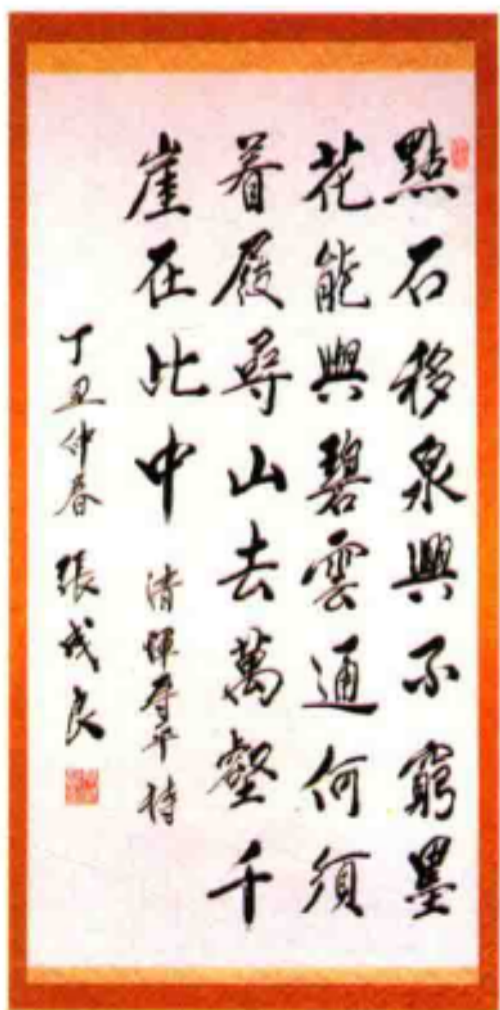 點石移泉興不窮墨
花能與碧雲通何須
着屐尋山去萬壑千
崖在此中 清暉
丁丑仲春 張成良